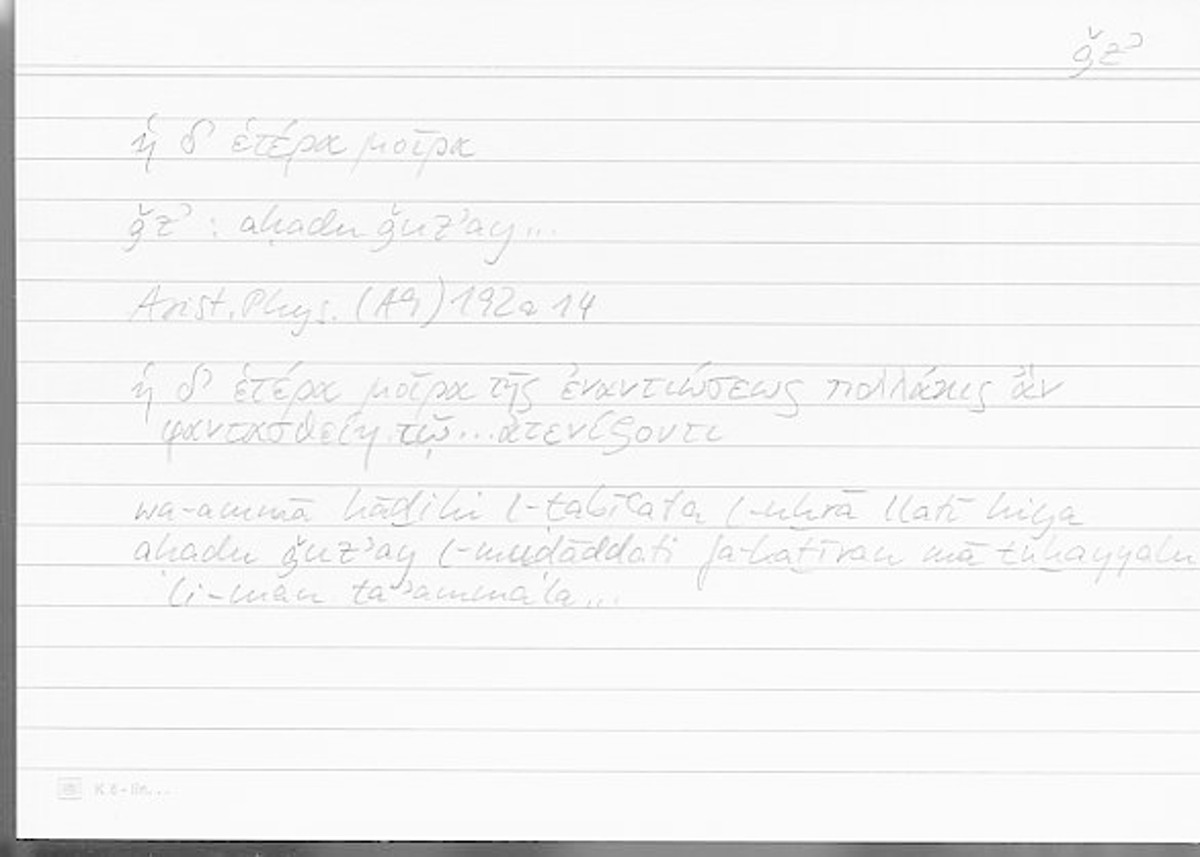 ǧzʾ
ἡ δ' ἑτέρα μοῖρα
ǧzʾ : aḥadu ǧuzʾay...
Arist. Phys. (A9) 192a 14
ἡ δ' ἑτέρα μοῖρα τῆς ἐναντιώσεως πολλάκις ἂν
φαντασθείη τῷ...ἀτενίζοντι
wa-ammā hāḏihi l-ṭabīʿata l-uḫrā llatī hiya
aḥadu ǧuzʾay l-muḍāddati fa-kaṯīran mā tuḫayyalu
li-man taʾammala...